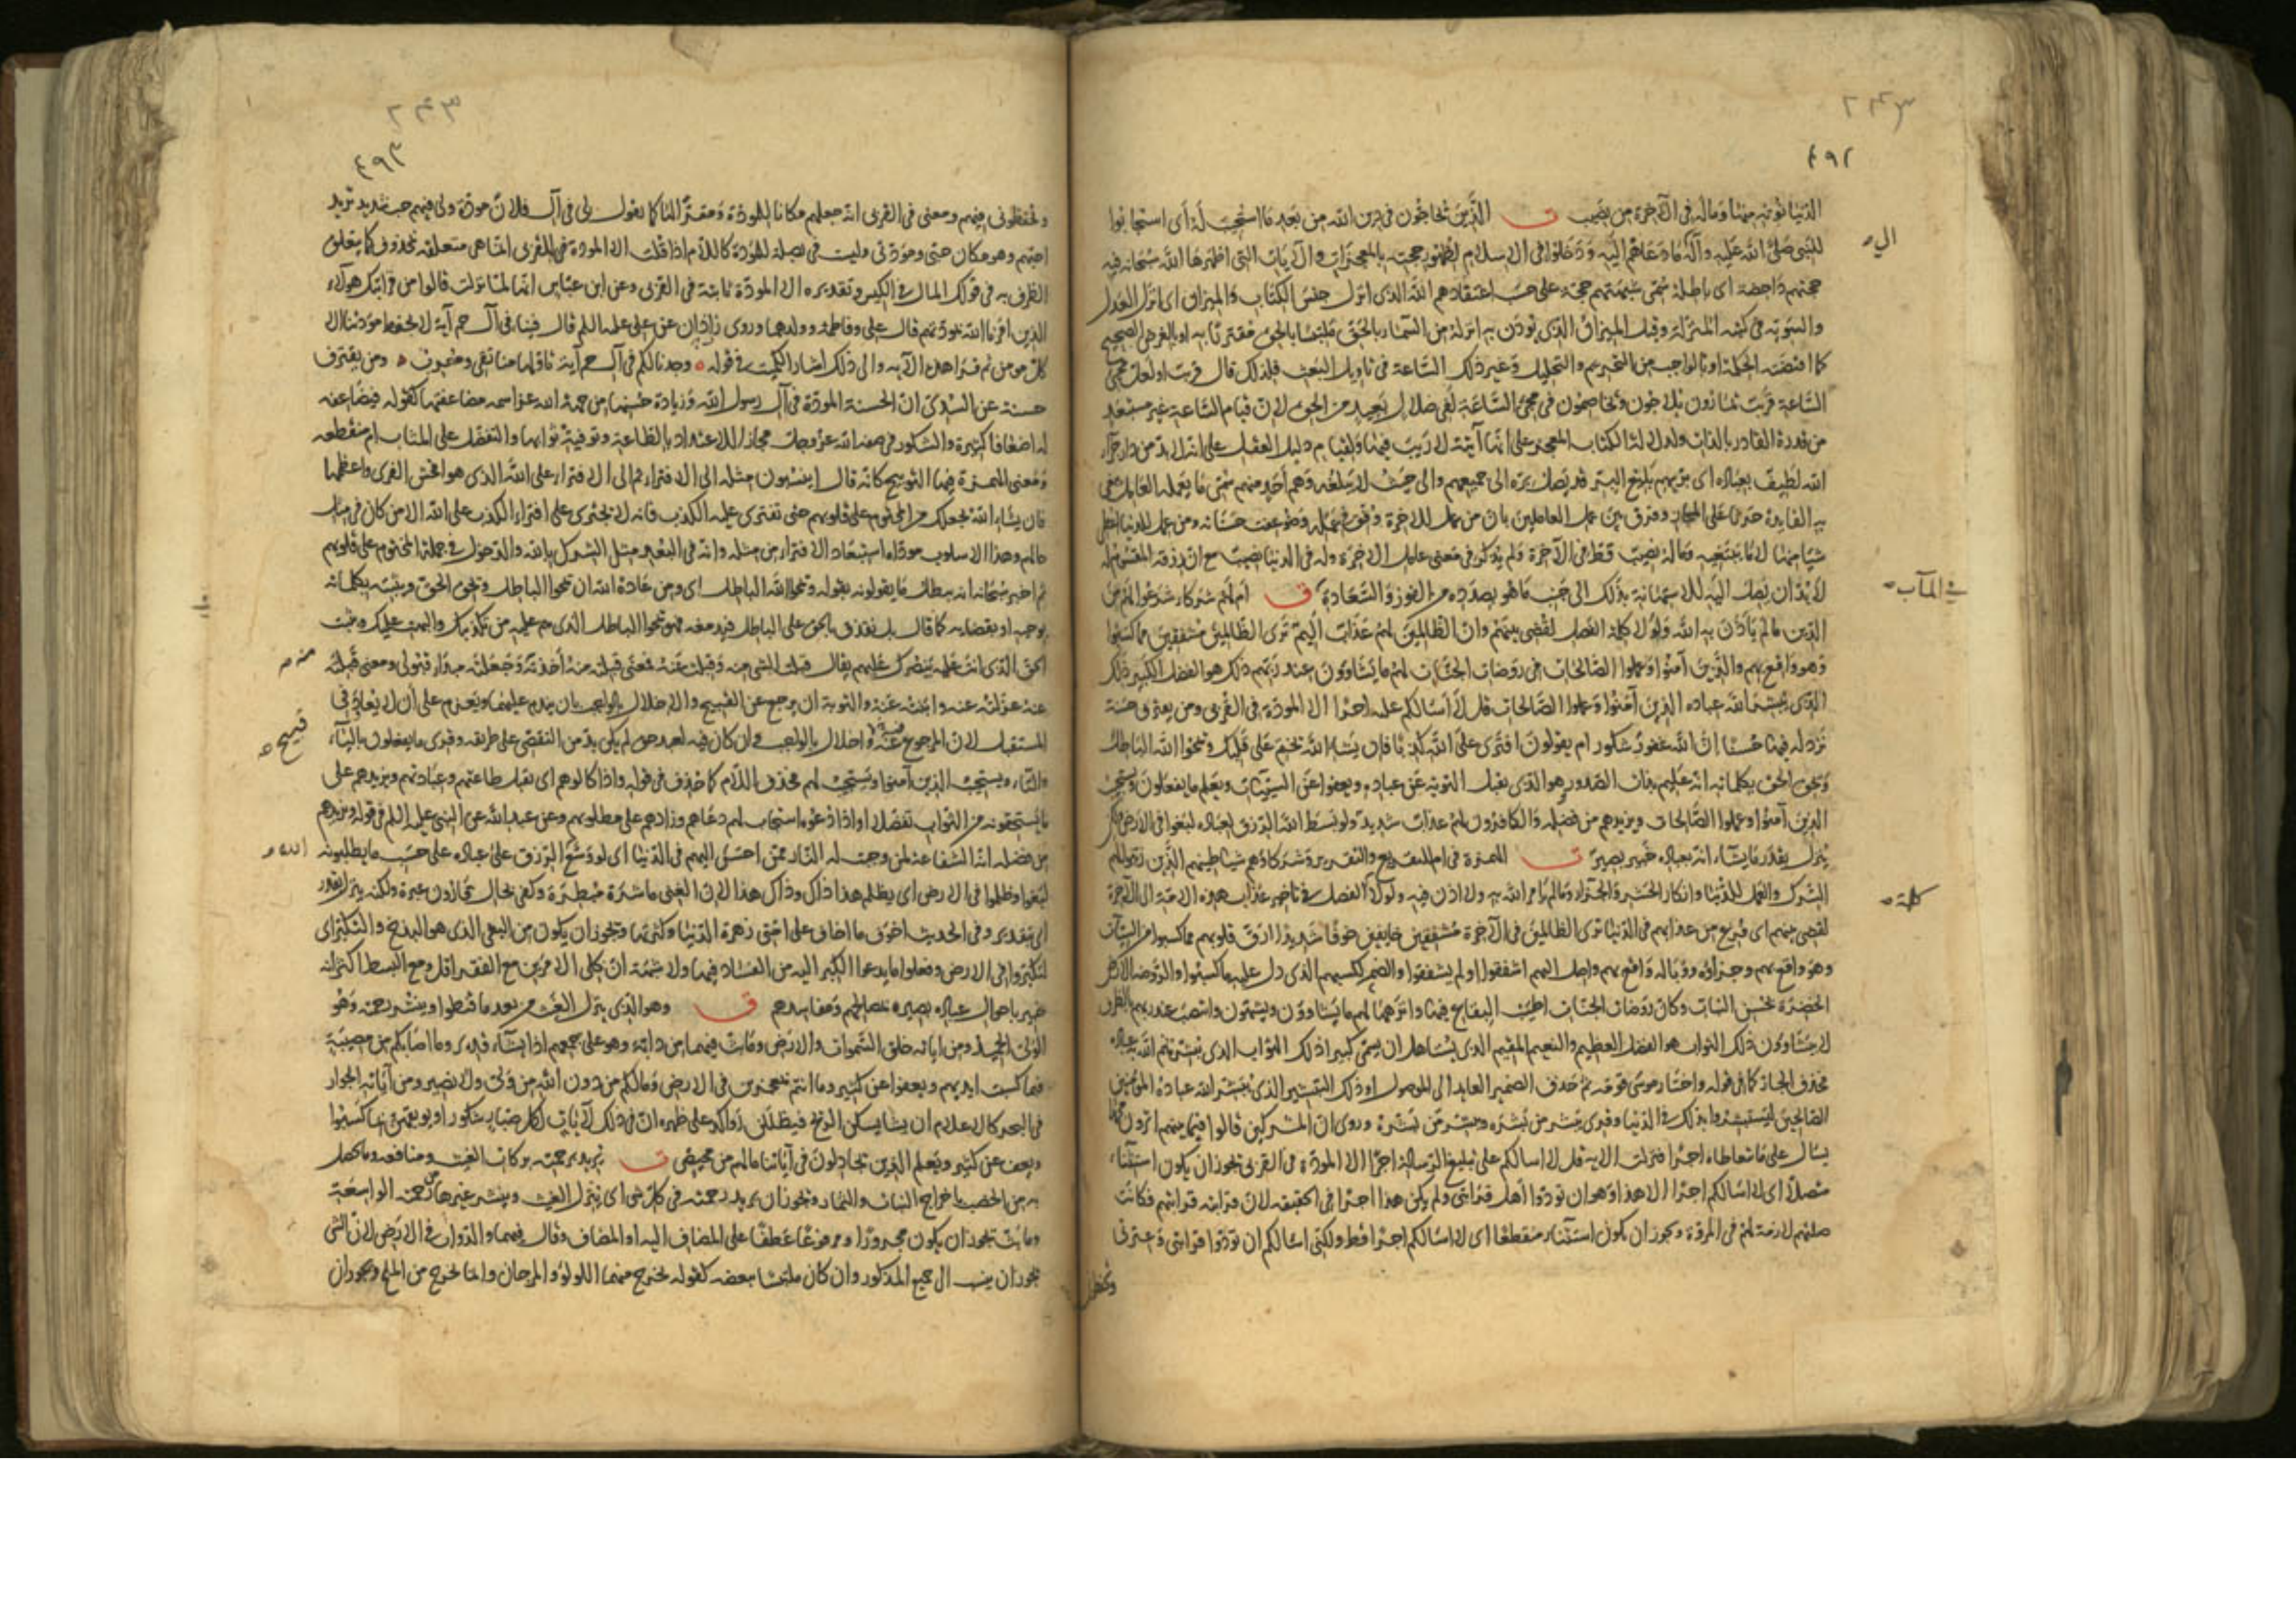 ٤٩٢
الدنيا نؤته منها وماله في الآخرة من نصيب ق الذين يحاجون في دين الله من بعد ما استجيب له أي استجابوا
للنبي صلى الله عليه وآله لما دعاهم اليه ودخلوا في الاسلام لظهور حجته بالمعجزات والآيات التي اظهرها الله سبحانه فيه
حجتهم داحضة اى باطلة سمى شبهتهم حجة على حسب اعتقادهم الله الذى انزل جنس الكتاب والميزان اى انزل العدل
والسوية في كتبه المنزلة وقيل الميزان الذي يوزن به انزله من السماء بالحق ملتبسا بالحق مقترنا به او بالغرض الصحيح
كما اقتضته الحكمة او بالواجب من التحريم والتحليل وغير ذلك الساعة في تاويل البعث فلذلك قال قريب او لعل مجئ
الساعة قريب يمارون يلاجون ويخاصمون في مجئ الساعة لفي ضلال بعيد من الحق لان قيام الساعة غير مستبعد
من قدرة القادر بالذات ولدلالة الكتاب المعجز على انها آتية لا ريب فيها ولقيام دليل العقل على انه لابد من دار جزاء
الله لطيف بعباده اى بر بهم بليغ البر قد يصل بره الى جميعهم والى حيث لا يبلغه وهم أحد منهم سمى ما يعمله العامل مما يبغي
به الفايدة حرثا على المجاز وفرق بين عمل العاملين بان من عمل للاخرة وفق في عمله وضوعفت حسناته ومن عمل للدنيا اعطى
شيئا منها لا ما يبتغيه وماله نصيب قط في الآخرة ولم يذكر في معنى عامل الاخرة وله في الدنيا نصيب مع ان رزقه المقسوم له
لابد ان يصل اليه للاستهانة بذلك الى جنب ما هو بصدده من الفوز والسعادة في المآب ق أم لهم شركاء شرعوا لهم من
الدين ما لم يأذن به الله ولولا كلمة الفصل لقضى بينهم وان الظالمين لهم عذاب اليم ترى الظالمين مشفقين مما كسبوا
وهو واقع بهم والذين آمنوا وعملوا الصالحات في روضات الجنات لهم ما يشاؤون عند ربهم ذلك هو الفضل الكبير ذلك
الذى يبشر الله عباده الذين آمنوا وعملوا الصالحات قل لا أسالكم عليه اجرا الا المودة في القربى ومن يقترف حسنة
نزد له فيها حسنا ان الله غفور شكور ام يقولون افترى على الله كذبا فان يشاء الله يختم على قلبك ويمحوا الله الباطل
ويحق الحق بكلماته انه عليم بذات الصدور وهو الذى يقبل التوبة عن عباده ويعفوا عن السيئات ويعلم ما يفعلون ويستجيب
الذين آمنوا وعملوا الصالحات ويزيدهم من فضله والكافرون لهم عذاب شديد ولو بسط الله الرزق لعباده لبغوا في الارض ولكن
ينزل بقدر ما يشاء انه بعباده خبير بصير ق الهمزة في ام للتقريع والتقرير وشركاؤهم شياطينهم الذين زينوا لهم
الشرك والعمل للدنيا وانكار الحشر والجزاء وما لم يأمر الله به ولا اذن فيه ولولا كلمة الفصل في تاخير عذاب هذه الامة الى الآخرة
لقضى بينهم اى فرغ من عذابهم في الدنيا ترى الظالمين في الآخرة مشفقين خايفين خوفا شديدا ارق قلوبهم مما كسبوا من السيئات
وهو واقع بهم وجزاؤه ووباله واقع بهم واصل اليهم اشفقوا او لم يشفقوا والضمير لكسبهم الذى دل عليه ما كسبوا والروضة الارض
الخضرة بحسن النبات وكان روضات الجنات اطيب البقاع فيها وانزهها لهم ما يشاؤون ويشتهون وانتصب عند ربهم بالظرف
لا يشاؤون ذلك الثواب هو الفضل العظيم والنعيم المقيم الذى يستاهل ان يسمى كبيرا ذلك الثواب الذى يبشر به الله عباده
فحذف الجار كما في قوله واختار موسى قومه ثم حذف الضمير العايد الى الموصول او ذلك التبشير الذى يبشر الله عباده المؤمنين
الصالحين ليستبشروا بذلك في الدنيا وقرى يبشر من بشره ويبشر من بشره وروى ان المشركين قالوا فيما بينهم اترون محمدا
يسال على ما يتعاطاه اجرا فنزلت الاية قل لا اسالكم على تبليغ الرسالة اجرا الا المودة في القربى يجوز ان يكون استثناء
متصلا اى لا اسالكم اجرا الا هذا وهو ان تودوا اهل قرابتى ولم يكن هذا اجرا في الحقيقة لان قرابته قرابتهم فكانت
صلتهم لازمة لهم في المروة ويجوز ان يكون استثناء منقطعا اى لا اسالكم اجرا قط ولكنى اسالكم ان تودوا قرابتى وعترتى
وتحفظونى
٤٩٣
وتحفظونى فيهم ومعنى في القربى انه جعلهم مكانا للمودة ومقرا لها كما يقول لى في آل فلان مودة ولى فيهم حب شديد تريد
احبهم وهم مكان حبى ومودتى وليست في بصلة للمودة كاللام اذا قلت الا المودة للقربى انما هى متعلقة بمحذوف كما يتعلق
الظرف به في قولك المال في الكيس وتقديره الا المودة ثابتة في القربى وعن ابن عباس انها لما نزلت قالوا من قرابتك هؤلاء
الذين امرنا الله بمودتهم قال على وفاطمة وولدهما وروى زاذان عن على عليه السلم قال فينا في آل حم آية لا يحفظ مودتنا الا
كل مومن ثم قرا هذه الآية والى ذلك اشار الكميت في قوله وجدنا لكم في آل حم آية تاولها منا تقى ومعرب ومن يقترف
حسنة عن السدى ان الحسنة المودة في آل رسول الله وزيادة حسنها من جهة الله عز اسمه مضاعفتها كقوله فيضاعفه
له اضعافا كثيرة والشكور في صفة الله عز وجل مجاز للاعتداد بالطاعة وتوفية ثوابها والتفضل على المثاب ام منقطعة
ومعنى الهمزة فيها التوبيخ كانه قال اينسبون مثله الى الافتراء ثم الى الافتراء على الله الذى هو افحش الفرى واعظمها
فان يشاء الله يجعلك من المختوم على قلوبهم حتى تفترى عليه الكذب فانه لا يجترى على افتراء الكذب على الله الا من كان في مثل
حالهم وهذا الاسلوب موداه استبعاد الافتراء من مثله وانه في البعد مثل الشرك بالله والدخول في جملة المختوم على قلوبهم
ثم اخبر سبحانه انه يبطل ما يقولونه بقوله ويمحوا الله الباطل اى ومن عادة الله ان يمحوا الباطل ويحق الحق ويثبته بكلماته
بوحيه او بقضايه كما قال بل نقذف بالحق على الباطل فيدمغه فهو يمحوا الباطل الذى هم عليه من تكذيبك والبهت عليك ويثبت
الحق الذى انت عليه بنصرك عليهم يقال قبلت الشئ منه وقبلت عنه فمعنى قبلته منه أخذته وجعلته مبدأ قبولى ومعنى قبلته
عنه عزلته عنه وابنته عنه والتوبة ان يرجع عن القبيح والاخلال بالواجب بان يندم عليهما ويعزم على أن لا يعاود في
المستقبل لان المرجوع عنه قبيح واخلال بالواجب وان كان فيه لعبد حق لم يكن بد من التفصى على طريقه وقرى ما يفعلون بالياء
والتاء ويستجيب الذين آمنوا ويستجيب لهم فحذف اللام كما حذف في قوله واذا كالوهم اى يقبل طاعتهم وعبادتهم ويزيدهم على
ما يستحقونه من الثواب تفضلا او اذا دعوه استجاب لهم دعاهم وزادهم على مطلوبهم وعن عبد الله عن النبى عليه السلم في قوله ويزيدهم
من فضله انه الشفاعة لمن وجبت له النار ممن احسن اليهم في الدنيا اى لو وسع الله الرزق على عباده على حسب ما يطلبونه
لبغوا وظلموا في الارض اى يظلم هذا ذاك وذاك هذا لان الغنى ماشرة مبطرة وكفى بحال قارون عبرة ولكنه ينزل بقدر
اى بتقدير وفي الحديث اخوف ما اخاف على امتى زهرة الدنيا وكثرتها ويجوز ان يكون من البغى الذى هو البذخ والتكبر اى
لتكبروا في الارض وفعلوا ما يدعوا الكبر اليه من الفساد فيها ولا شبهة ان كلى الامرين مع الفقر اقل ومع البسط اكثر انه
خبير باحوال عباده بصير بمصالحهم ومفاسدهم ق وهو الذى ينزل الغيث من بعد ما قنطوا وينشر رحمته وهو
الولى الحميد ومن اياته خلق السموات والارض وما بث فيهما من دابة وهو على جمعهم اذا يشاء قدير وما اصابكم من مصيبة
فبما كسبت ايديهم ويعفوا عن كثير وما انتم بمعجزين في الارض وما لكم من دون الله من ولى ولا نصير ومن آياته الجوار
في البحر كالاعلام ان يشا يسكن الريح فيظللن رواكد على ظهره ان في ذلك لآيات لكل صبار شكور او يوبقهن بما كسبوا
ويعف عن كثير ويعلم الذين يجادلون في آياتنا ما لهم من محيص ق يريد برحمته بركات الغيث ومنافعه وما يحصل
به من الخصب باخراج النبات والثمار ويجوز ان يريد رحمته في كل شى اى ينزل الغيث وينشر غيرها من رحمته الواسعة
وما بث يجوز ان يكون مجرورا ومرفوعا عطفا على المضاف اليه او المضاف وقال فيهما والدواب في الارض لان الشى
يجوز ان ينسب الى جميع المذكور وان كان ملتبسا ببعضه كقوله يخرج منهما اللولؤ والمرجان وانما يخرج من الملح ويجوز ان